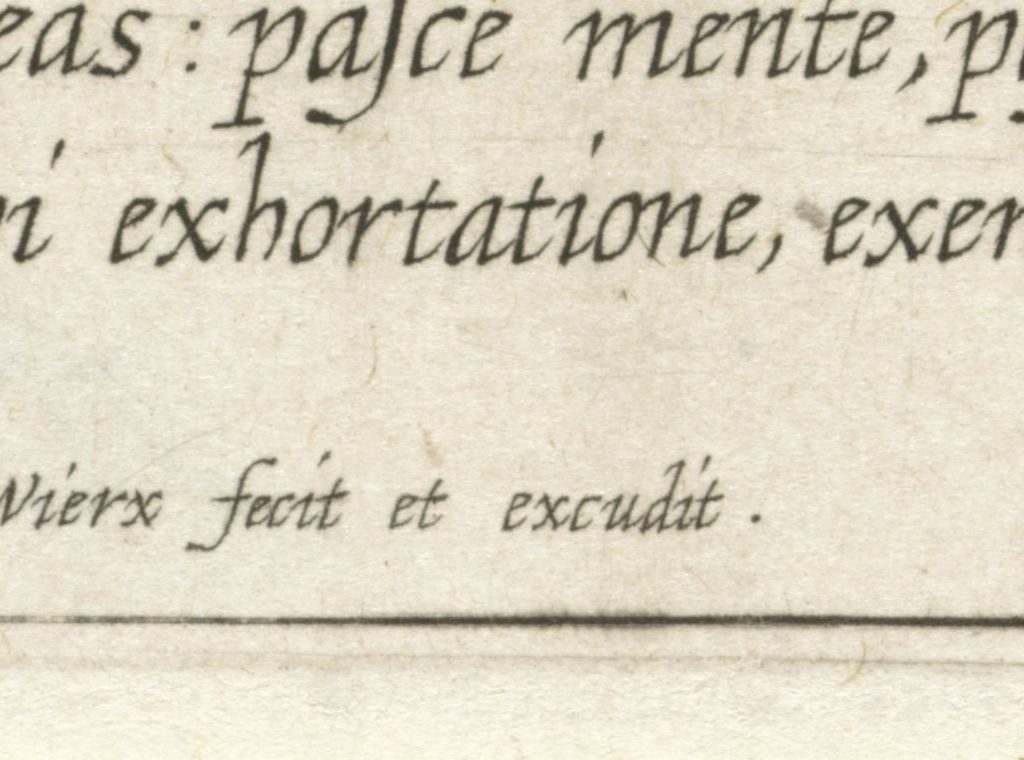 eas : paſce mente, p
ni exhortatione, exer
Wierx fecit et excudit .